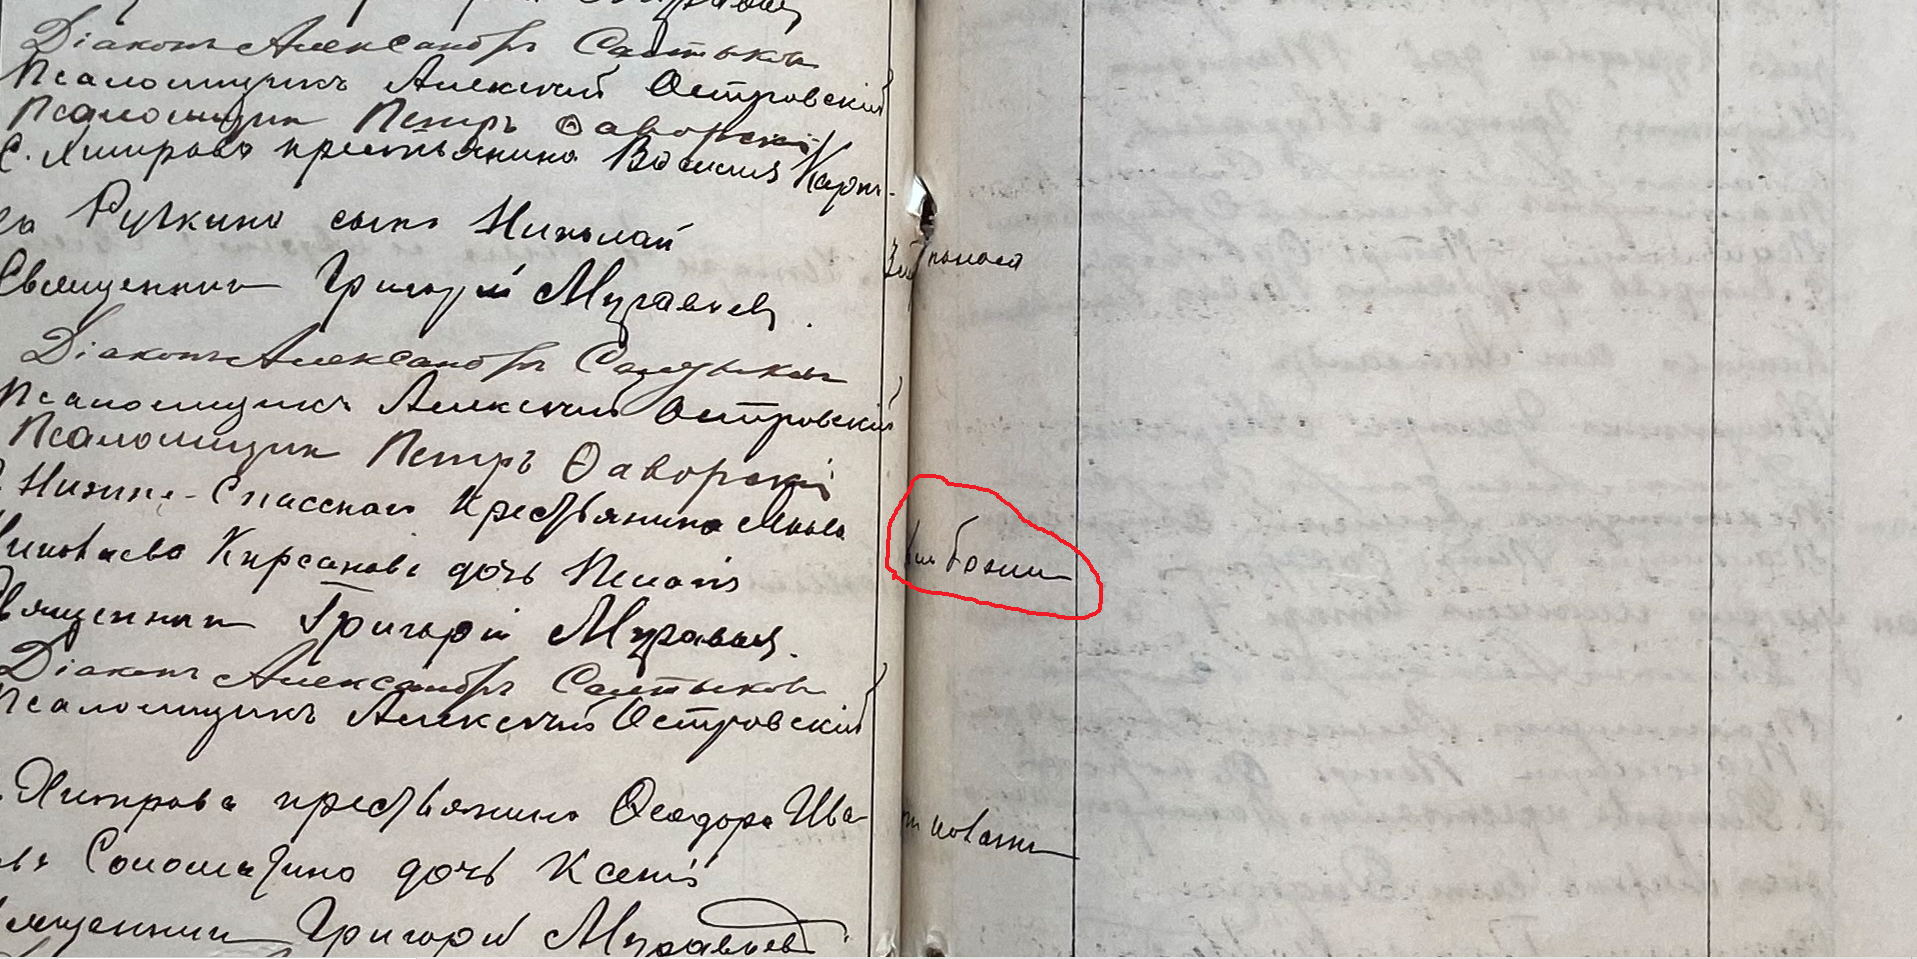 Діаконъ Александръ Салтыковъ
Псаломщикъ Алексѣй Островскій
Псаломщик Петръ Ѳаворскій
С. Хитрова крестьянина Василія Карп-
Ручкина сынъ Николай
Священник Григорій Муравьев.
Діаконъ Александръ Салтыковъ
Псаломщикъ Алексѣй Островскій
Псаломщик Петръ Ѳаворскій
Нижне-Спасскаго Крестьянина
Кирсанова дочь Пелагія
Священник Григорій Муравьев.
Діаконъ Александръ Салтыковъ
Псаломщикъ Алексѣй Островскій
Хитрова крестьянина Ѳеодора Ива-
Соломатина дочь Ксенія
Священник Григорій Муравьев